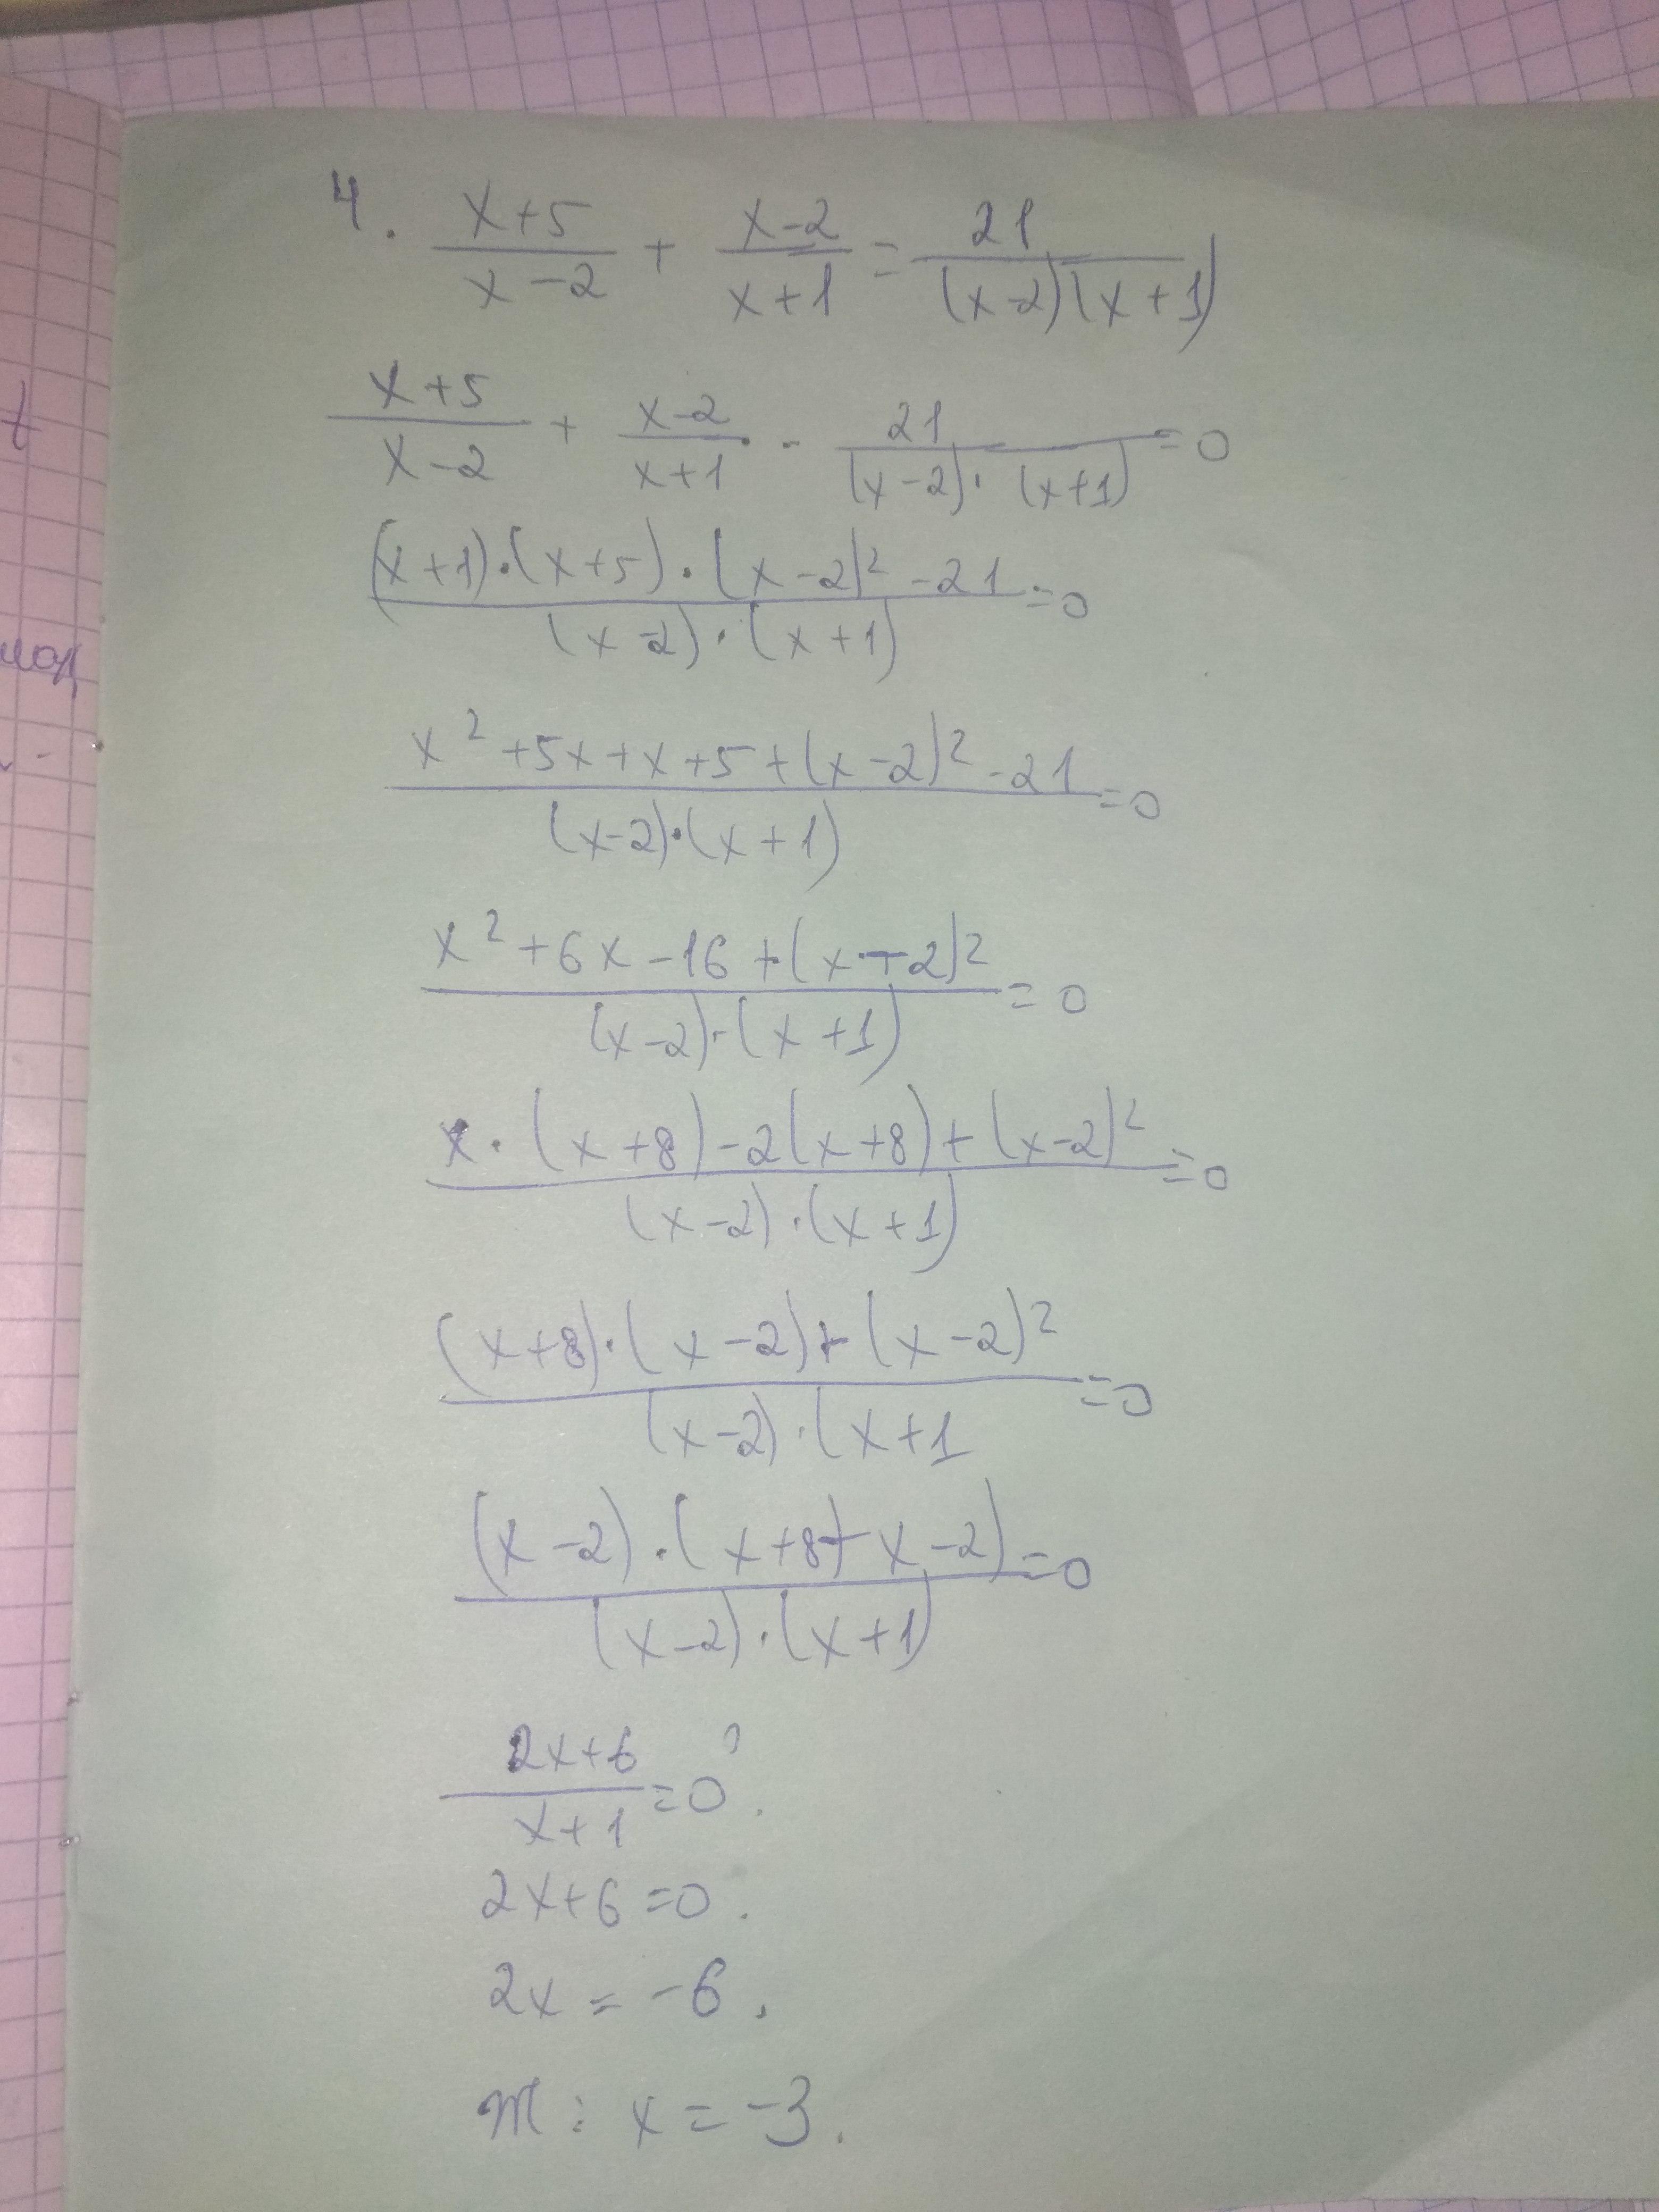 4. (x+5)/(x-2) + (x-2)/(x+1) = 21/((x-2)(x+1))
(x+5)/(x-2) + (x-2)/(x+1) - 21/((x-2)·(x+1)) = 0
((x+1)·(x+5)·(x-2)² - 21)/((x-2)·(x+1)) = 0
(x² + 5x + x + 5 + (x-2)² - 21)/((x-2)·(x+1)) = 0
(x² + 6x - 16 + (x-2)²)/((x-2)·(x+1)) = 0
(x·(x+8) - 2(x+8) + (x-2)²)/((x-2)·(x+1)) = 0
((x+8)·(x-2) + (x-2)²)/((x-2)·(x+1 = 0
((x-2)·(x+8+x-2))/((x-2)·(x+1)) = 0
(2x+6)/(x+1) = 0
2x+6 = 0.
2x = -6.
m: x = -3.